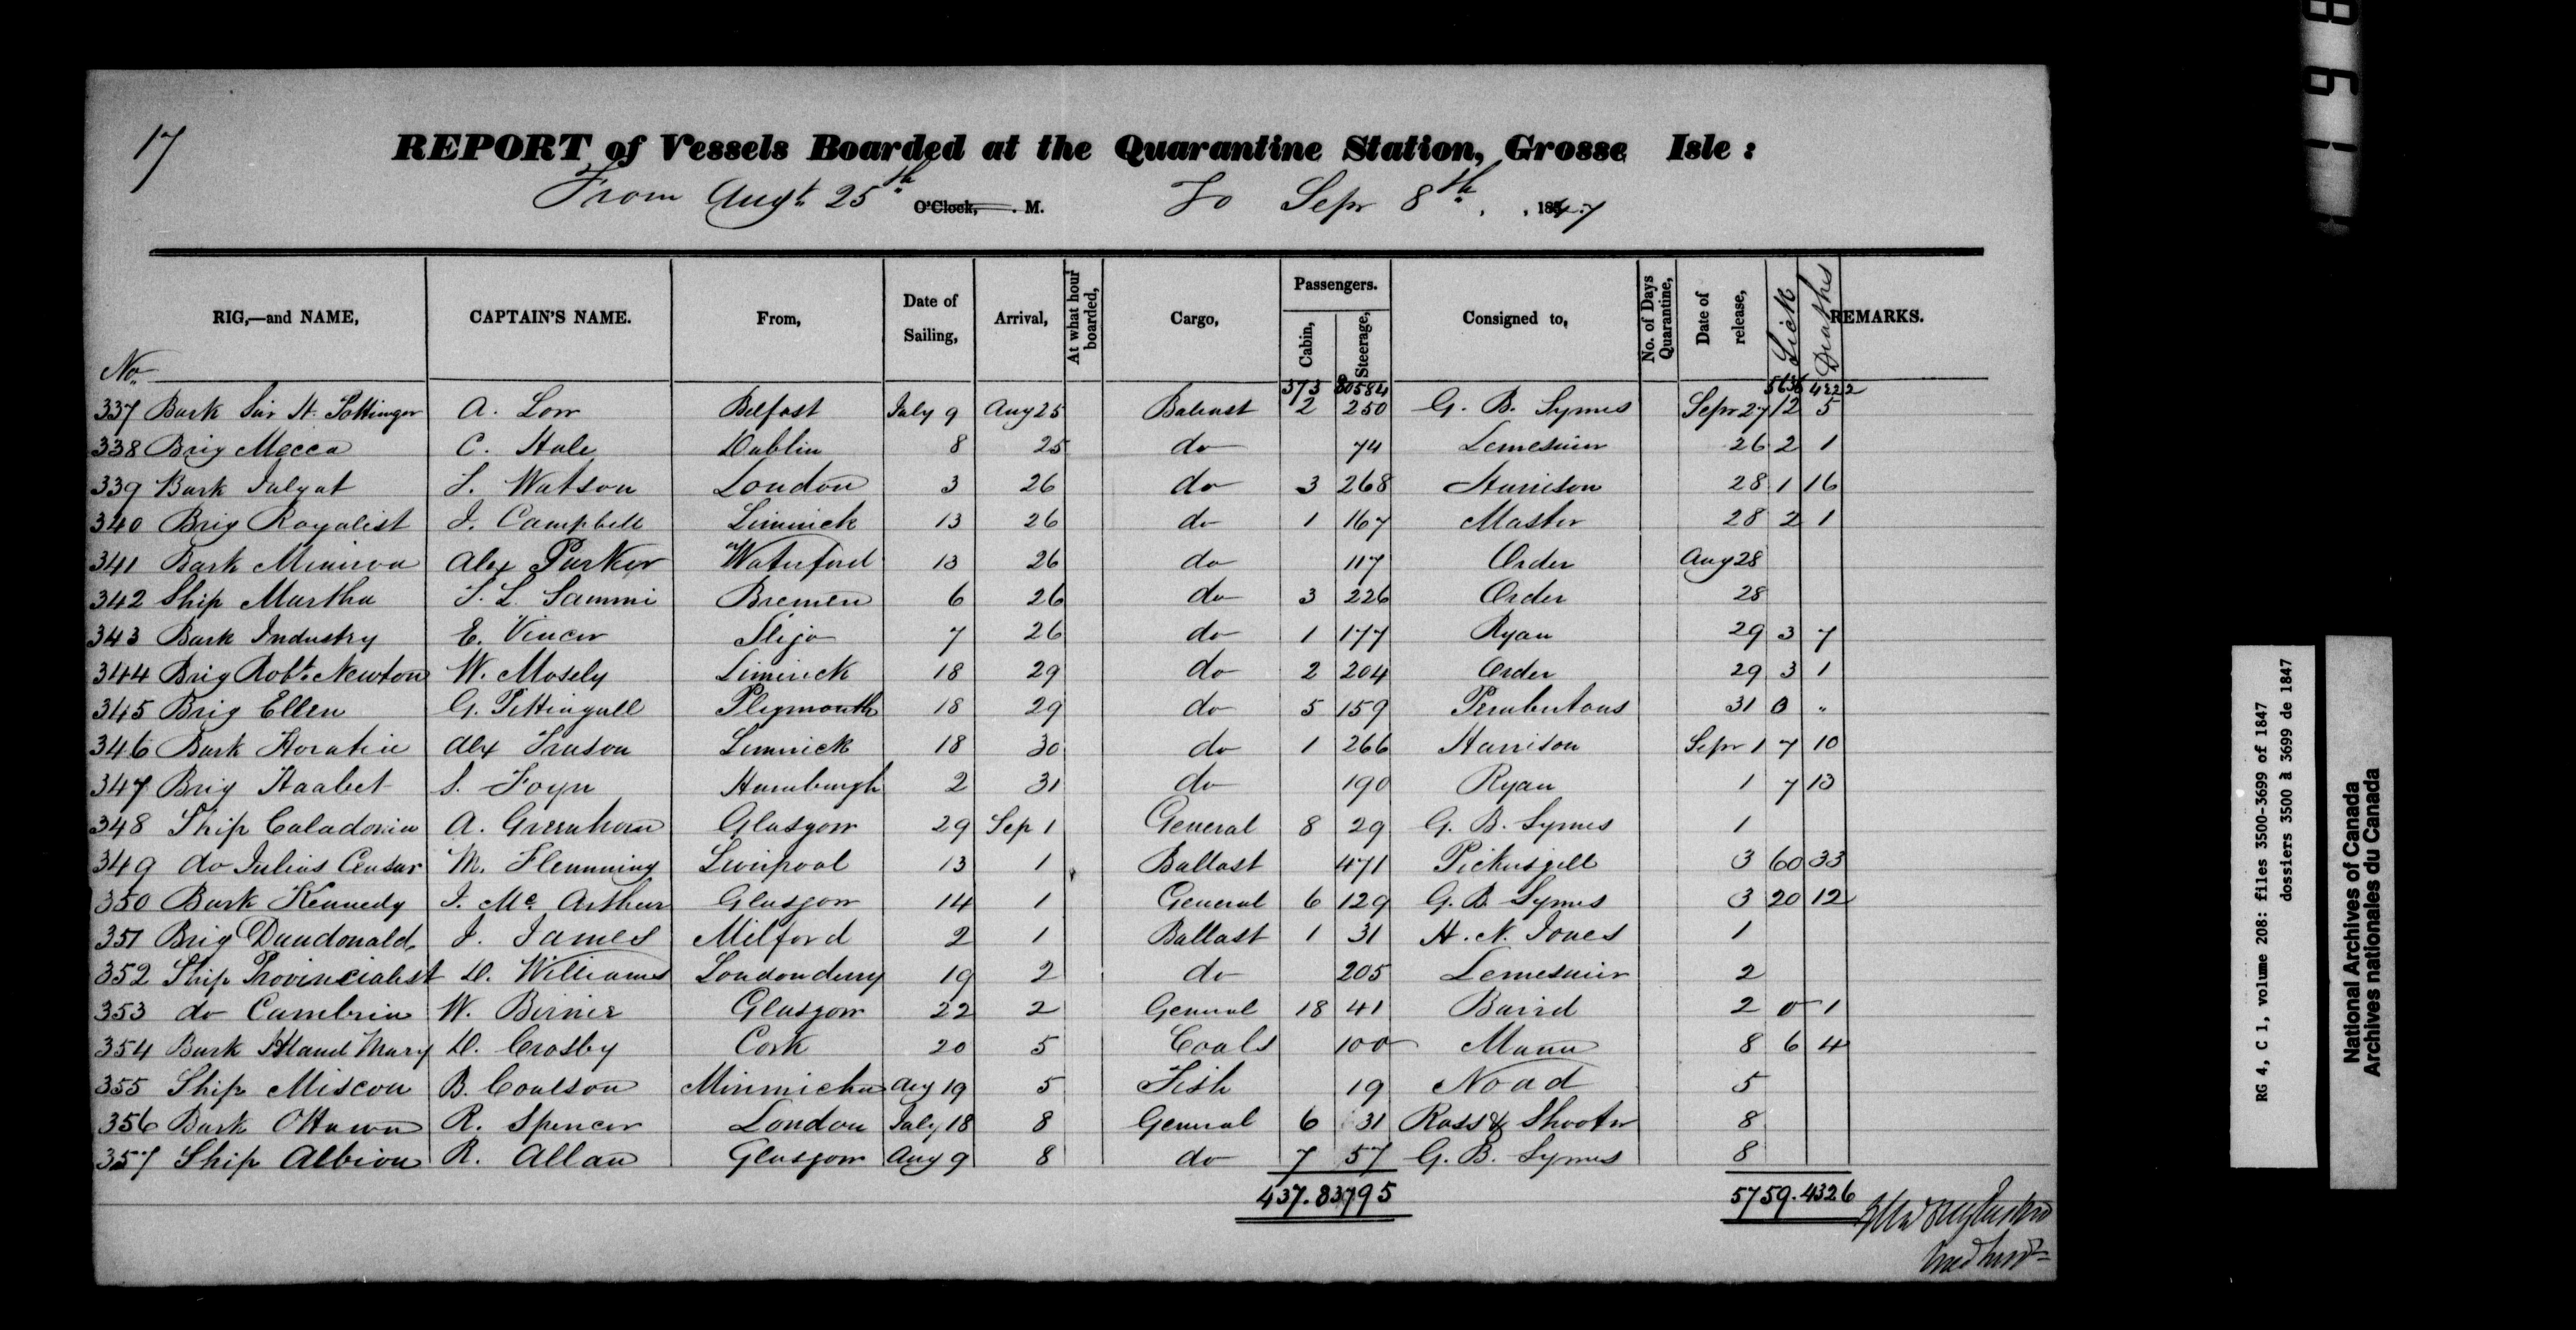 17
REPORT of Vessels Boarded at the Quarantine Station, Grosse Isle :
From Augt 25th O'Clock, . M. To Sepr 8th . , 1847
RIG,—and NAME, CAPTAIN'S NAME. From, Date of Sailing, Arrival, At what hour boarded, Cargo, Passengers. Cabin, Steerage, Consigned to, No. of Days Quarantine, Date of release, Sick Deaths REMARKS.
No
373 80584 5636 4222
337 Bark Sir H. Pottinger A. Low Belfast July 9 Aug 25 Balast 2 250 G. B. Symes Sepr 27 12 5
338 Brig Mecca C. Hale Dublin 8 25 do 74 Lemesurier 26 2 1
339 Bark Julyat T. Watson London 3 26 do 3 268 Harrison 28 1 16
340 Brig Royalist J. Campbell Limrick 13 26 do 1 167 Master 28 2 1
341 Bark Minerva Alex Parker Waterford 13 26 do 117 Order Aug 28
342 Ship Martha T. L. Sammi Bremen 6 26 do 3 226 Order 28
343 Bark Industry E. Vincer Sligo 7 26 do 1 177 Ryan 29 3 7
344 Brig Robt. Newton W. Mosely Limirick 18 29 do 2 204 Order 29 3 1
345 Brig Ellen G. Pittingall Plymouth 18 29 do 5 159 Pembertons 31 0 "
346 Bark Horatio Alex 18 30 do 1 266 Harrison Sepr 1 7 10
347 Brig Haabet S. Foyn Hamburgh 2 31 do 190 Ryan 1 7 13
348 Ship Caladonia A. Greenhorn Glasgow 29 Sep 1 General 8 29 G. B. Symes 1
349 do Julius Ceasar M. Flemming Liverpool 13 1 Ballast 471 Pickersgill 3 60 33
350 Bark Kennedy J. Mc Arthur Glasgow 14 1 General 6 129 G. B. Symes 3 20 12
351 Brig Dundonald J. James Milford 2 1 Ballast 1 31 H. N. Jones 1
352 Ship Provincialist D. Williams Londonderry 19 2 do 205 Lemesurier 2
353 do Cambria W. Birnie Glasgow 22 2 General 18 41 Baird 2 0 1
354 Bark Maud Mary D. Crosby Cork 20 5 Coals 100 Mann 8 6 4
355 Ship Miscou B. Coulson Mirimicha Aug 19 5 Fish 19 Noad 5
356 Bark Ottawa R. Spencer London July 18 8 General 6 31 Ross & Shooter 8
357 Ship Albion R. Allan Glasgow Aug 9 8 do 7 57 G. B. Symes 8
437. 83795 5759. 4326
RG 4, C 1, volume 208: files 3500-3699 of 1847
dossiers 3500 à 3699 de 1847
National Archives of Canada
Archives nationales du Canada